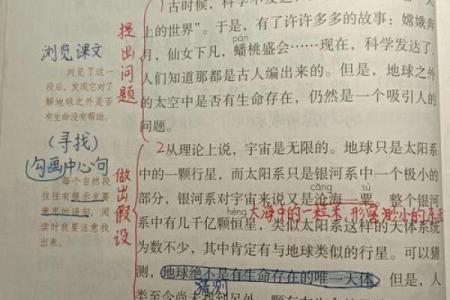 1古时候,科学不发达,
上的世界”。于是,有了许许多多的故事:嫦娥奔
pán
月,仙女下凡,蟠桃盛会……现在,科学发达了,
人们知道那都是古人编出来的。但是,地球之外
的太空中是否有生命存在,仍然是一个吸引人的
问题。
提出问题
浏览课文
浏览了这一
段后,发现它对了
解地球之外是否
有生命没有帮助。
2从理论上说,宇宙是无限的。地球只是太阳系
中的一颗行星,而太阳系只是银河系中一个极小的
cāng sù
部分,银河系对宇宙来说又是沧海一粟。整个银河
héng 大海中的一粒米,形容渺小的东西
系中有几千亿颗恒星,类似太阳系这样的天体系统
为数不少,其中肯定有与地球类似的行星。可以猜
测,地球绝不是有生命存在的唯一天体。但是,人
猜测
类至今尚未找到另外一颗有生命
做出假设
(寻找)
勾画中心句
每个自然段
往往有提示主要
意思的语句,阅
读时我要注意找
出来。